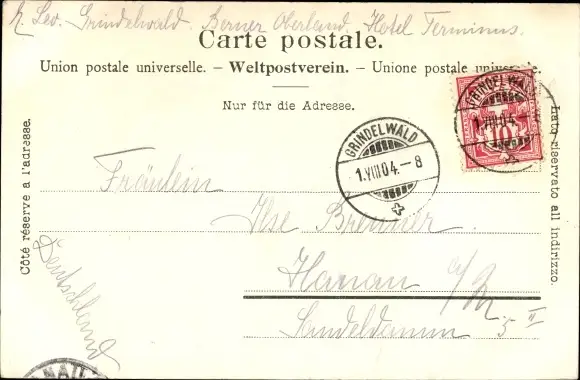 Grindelwald. Berner Oberland. Hotel Terminus.
Carte postale.
Union postale universelle. – Weltpostverein. – Unione postale universale.
Nur für die Adresse.
Côté réservé a l'adresse.
Lato riservato all indirizzo.
GRINDELWALD
1.VIII.04.–8
GRINDELWALD
1.VIII.04.–8
10
Fräulein
Ilse Brenner
Hanau a/M
5 II
Deutschland